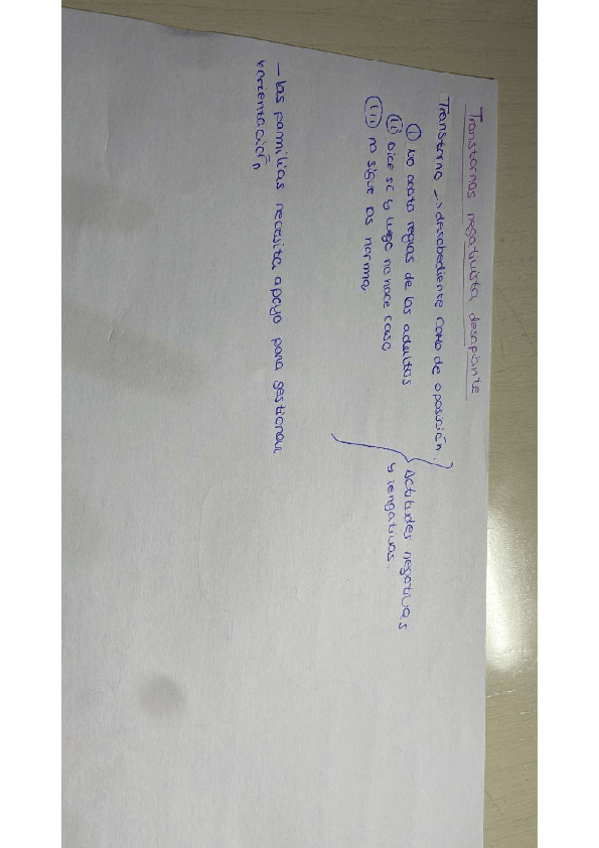 Transtornos negativista desafiante
Transtorno -> desobediente como de oposición.
(i) No acata reglas de los adultos
(ii) dice sí y luego no hace caso
(iii) no sigue las norma.
Actitudes negativas
y vengativas.
- las familias necesita apoyo para gestionar